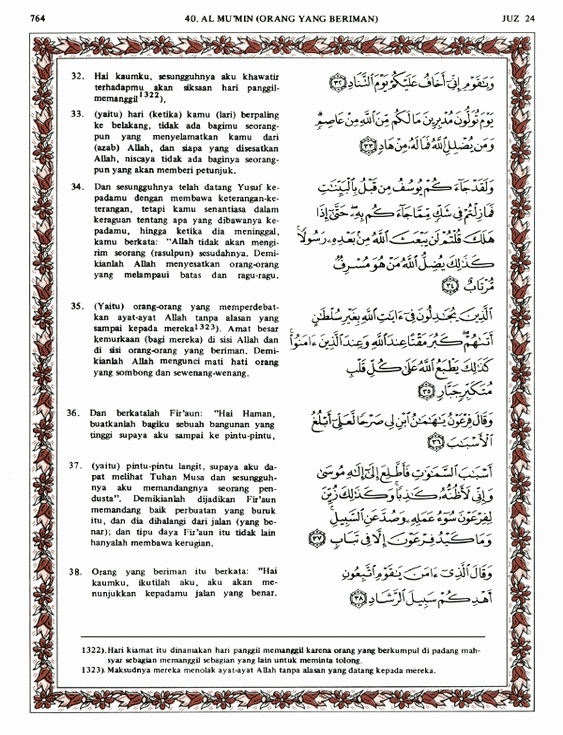 764
40. AL MU'MIN (ORANG YANG BERIMAN)
JUZ 24
32. Hai kaumku, sesungguhnya aku khawatir
terhadapmu akan siksaan hari panggil-
memanggil1322),
33. (yaitu) hari (ketika) kamu (lari) berpaling
ke belakang, tidak ada bagimu seorang-
pun yang menyelamatkan kamu dari
(azab) Allah, dan siapa yang disesatkan
Allah, niscaya tidak ada baginya seorang-
pun yang akan memberi petunjuk.
34. Dan sesungguhnya telah datang Yusuf ke-
padamu dengan membawa keterangan-kete-
terangan, tetapi kamu senantiasa dalam
keraguan tentang apa yang dibawanya ke-
padamu, hingga ketika dia meninggal,
kamu berkata: "Allah tidak akan mengi-
rim seorang (rasulpun) sesudahnya. Demi-
kianlah Allah menyesatkan orang-orang
yang melampaui batas dan ragu-ragu.
35. (Yaitu) orang-orang yang memperdebat-
kan ayat-ayat Allah tanpa alasan yang
sampai kepada mereka1323). Amat besar
kemurkaan (bagi mereka) di sisi Allah dan
di sisi orang-orang yang beriman. Demi-
kianlah Allah mengunci mati hati orang
yang sombong dan sewenang-wenang.
36. Dan berkatalah Fir'aun: "Hai Haman,
buatkanlah bagiku sebuah bangunan yang
tinggi supaya aku sampai ke pintu-pintu,
37. (yaitu) pintu-pintu langit, supaya aku da-
pat melihat Tuhan Musa dan sesungguh-
nya aku memandangnya seorang pen-
dusta". Demikianlah dijadikan Fir'aun
memandang baik perbuatan yang buruk
itu, dan dia dihalangi dari jalan (yang be-
nar); dan tipu daya Fir'aun itu tidak lain
hanyalah membawa kerugian.
38. Orang yang beriman itu berkata: "Hai
kaumku, ikutilah aku, aku akan me-
nunjukkan kepadamu jalan yang benar.
وَيَٰقَوْمِ إِنِّىٓ أَخَافُ عَلَيْكُمْ يَوْمَ ٱلتَّنَادِ ٣٢
يَوْمَ تُوَلُّونَ مُدْبِرِينَ مَا لَكُم مِّنَ ٱللَّهِ مِنْ عَاصِمٍ
وَمَن يُضْلِلِ ٱللَّهُ فَمَا لَهُۥ مِنْ هَادٍ ٣٣
وَلَقَدْ جَآءَكُمْ يُوسُفُ مِن قَبْلُ بِٱلْبَيِّنَٰتِ
فَمَا زِلْتُمْ فِى شَكٍّ مِّمَّا جَآءَكُم بِهِۦ حَتَّىٰٓ إِذَا
هَلَكَ قُلْتُمْ لَن يَبْعَثَ ٱللَّهُ مِنۢ بَعْدِهِۦ رَسُولًا
كَذَٰلِكَ يُضِلُّ ٱللَّهُ مَنْ هُوَ مُسْرِفٌ
مُّرْتَابٌ ٣٤
ٱلَّذِينَ يُجَٰدِلُونَ فِىٓ ءَايَٰتِ ٱللَّهِ بِغَيْرِ سُلْطَٰنٍ
أَتَىٰهُمْ كَبُرَ مَقْتًا عِندَ ٱللَّهِ وَعِندَ ٱلَّذِينَ ءَامَنُوا۟
كَذَٰلِكَ يَطْبَعُ ٱللَّهُ عَلَىٰ كُلِّ قَلْبِ
مُتَكَبِّرٍ جَبَّارٍ ٣٥
وَقَالَ فِرْعَوْنُ يَٰهَٰمَٰنُ ٱبْنِ لِى صَرْحًا لَّعَلِّىٓ أَبْلُغُ
ٱلْأَسْبَٰبَ ٣٦
أَسْبَٰبَ ٱلسَّمَٰوَٰتِ فَأَطَّلِعَ إِلَىٰٓ إِلَٰهِ مُوسَىٰ
وَإِنِّى لَأَظُنُّهُۥ كَٰذِبًا وَكَذَٰلِكَ زُيِّنَ
لِفِرْعَوْنَ سُوٓءُ عَمَلِهِۦ وَصُدَّ عَنِ ٱلسَّبِيلِ
وَمَا كَيْدُ فِرْعَوْنَ إِلَّا فِى تَبَابٍ ٣٧
وَقَالَ ٱلَّذِىٓ ءَامَنَ يَٰقَوْمِ ٱتَّبِعُونِ
أَهْدِكُمْ سَبِيلَ ٱلرَّشَادِ ٣٨
1322). Hari kiamat itu dinamakan hari panggil memanggil karena orang yang berkumpul di padang mah-
syar sebagian memanggil sebagian yang lain untuk meminta tolong.
1323). Maksudnya mereka menolak ayat-ayat Allah tanpa alasan yang datang kepada mereka.